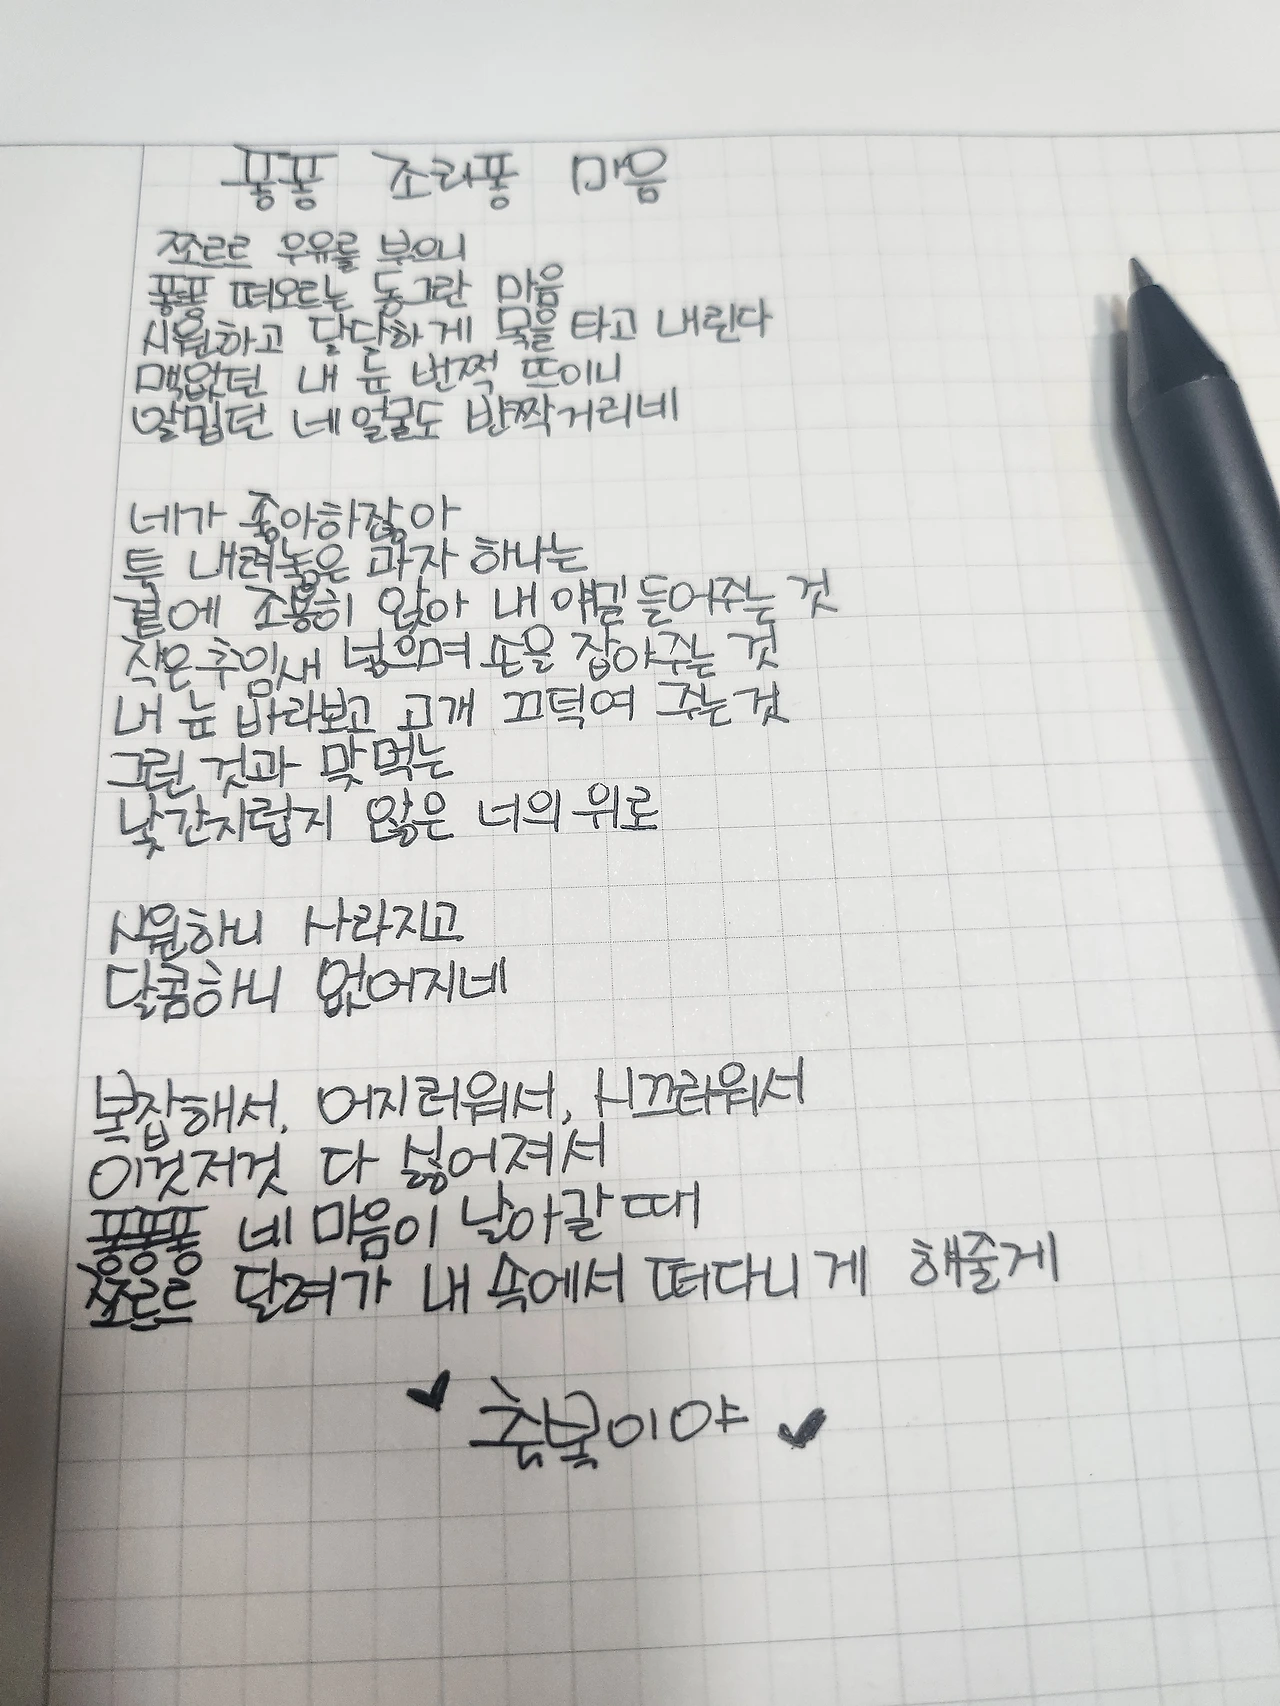 퐁퐁 조리퐁 마음
쪼르르 우유를 부으니
퐁퐁 떠오르는 동그란 마음
시원하고 달달하게 목을 타고 내린다
맥없던 내 눈 번쩍 뜨이니
얄밉던 네 얼굴도 반짝거리네
네가 좋아하잖아
툭 내려놓은 과자 하나는
곁에 조용히 앉아 내 얘길 들어주는 것
작은 추임새 넣으며 손을 잡아주는 것
내 눈 바라보고 고개 끄덕여 주는 것
그런 것과 맞먹는
낯간지럽지 않은 너의 위로
시원하니 사라지고
달콤하니 없어지네
복잡해서, 어지러워서, 시끄러워서
이것저것 다 싫어져서
퐁퐁퐁 네 마음이 날아갈 때
쪼르르 달려가 내 속에서 떠다니게 해줄게
이야